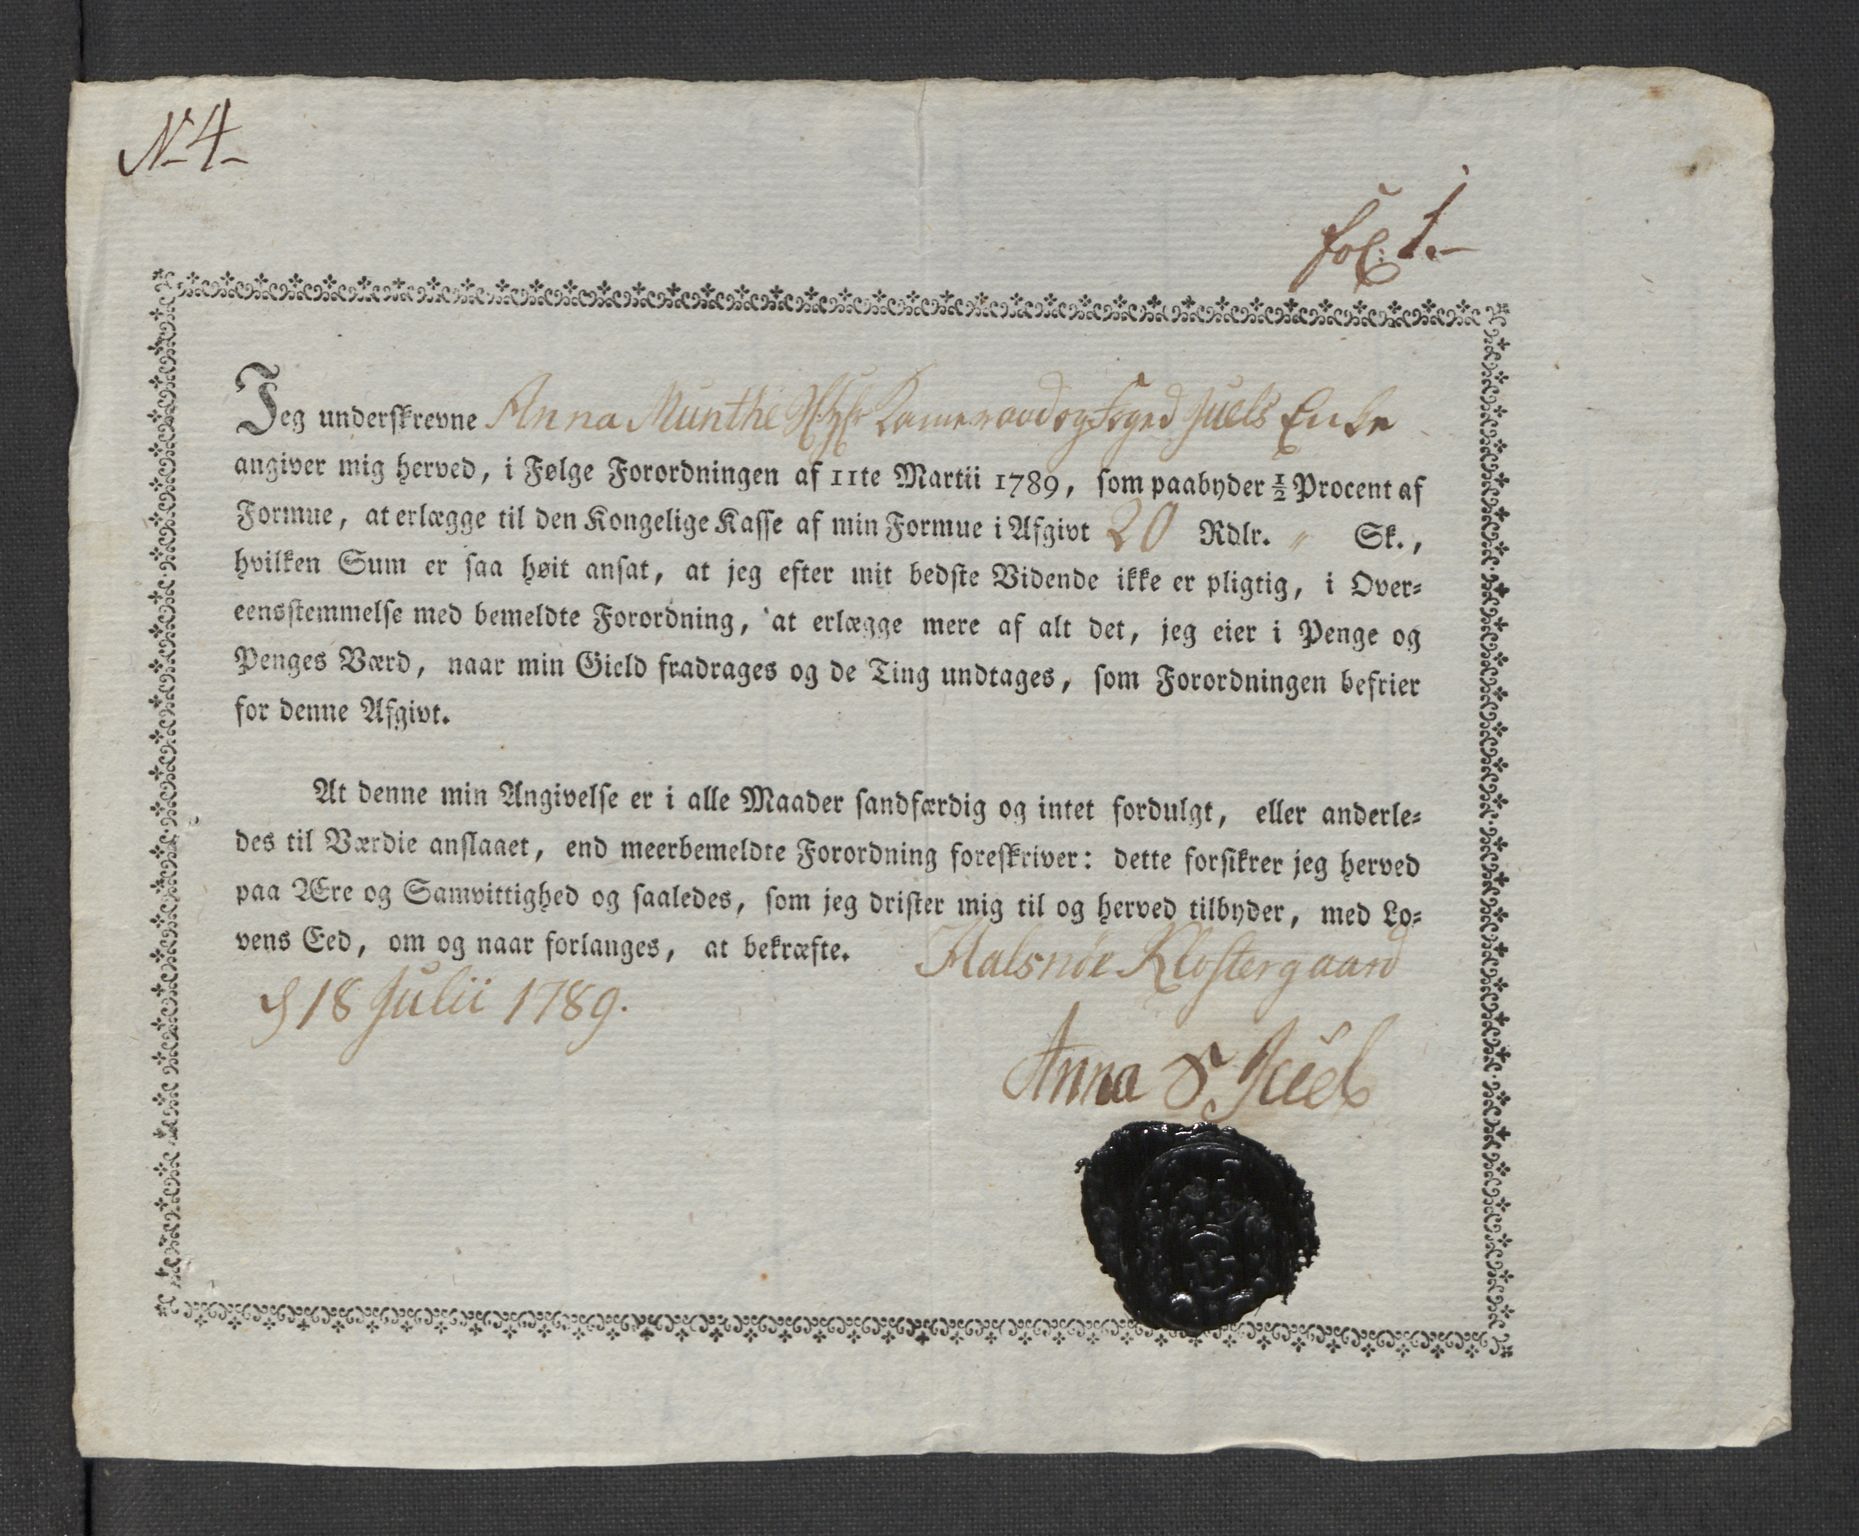 N 4
fol: 1.
Jeg underskrevne Anna Munthe Kameraad og Foged Juels Enke
angiver mig herved, i Følge Forordningen af 11te Martii 1789, som paabyder ½ Procent af
Formue, at erlægge til den Kongelige Kasse af min Formue i Afgivt 20 Rdlr. " Sk.,
hvilken Sum er saa høit ansat, at jeg efter mit bedste Vidende ikke er pligtig, i Over-
eensstemmelse med bemeldte Forordning, at erlægge mere af alt det, jeg eier i Penge og
Penges Værd, naar min Gield fradrages og de Ting undtages, som Forordningen befrier
for denne Afgivt.
At denne min Angivelse er i alle Maader sandfærdig og intet fordulgt, eller anderle-
des til Værdie anslaaet, end meerbemeldte Forordning foreskriver: dette forsikrer jeg herved
paa Ære og Samvittighed og saaledes, som jeg drister mig til og herved tilbyder, med Lo-
vens Eed, om og naar forlanges, at bekræfte. Halsnöe Klostergaard
d 18 Julii 1789.
Anna S Juel